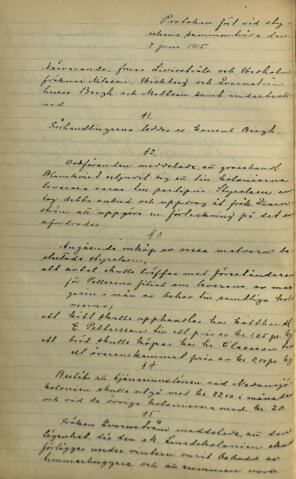 Protokoll fört vid sty-
relsens sammanträde den
7 juni 1915.
Närvarande: fruar Liljestråle och
fröknar Nilsson, och Qvarnström
herrar Bergh och Mattsson samt underteck-
nad.
§1.
Förhandlingarna leddes av Konsul Bergh.
§2.
Ordföranden meddelade, att grosshandl.
Blomkvist erbjudit sig att till kolonierna
leverera varor till partipris. Styrelsen an-
tog detta anbud och uppdrog åt frk. Qvarn-
ström att uppgöra en förteckning på det som
erfordrades.
§3
Angående inköp av vissa matvaror be-
slutade styrelsen,
att avtal skulle träffas med föreståndaren
för Pellerins filial om leverans av mar-
garin i mån av behov till samtliga kolo-
nierna;
att kött skulle upphandlas hos
E. Pettersson till ett pris av kr. 1,25 pr kg
att bröd skulle köpas hos Hr. Claesson till
ett överenskommet pris av kr. 0,40 pr kg
§4
Beslöt att tjänarinnelönen vid
kolonien skulle utgå med kr. 22,50 i månaden
och vid de övriga kolonierna med kr. 20.
§5.
Fröken Qvarnström meddelade, att den
lägenhet, där den s.k. Lundskolonien skulle
förläggas under vintern varit bebodd av
timmerhuggare och att rummen voro